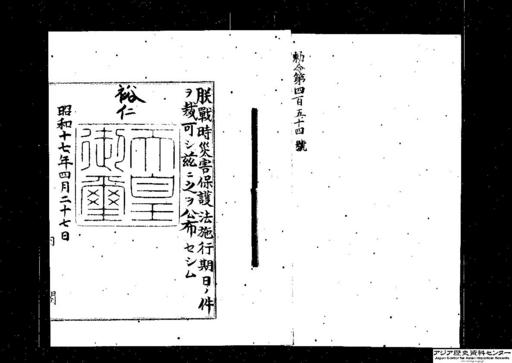 勅令第四百五十四號
朕戰時災害保護法施行期日ノ件
ヲ裁可シ茲ニ之ヲ公布セシム
裕仁
天皇御璽
昭和十七年四月二十七日
アジア歴史資料センター
Japan Center for Asian Historical Records